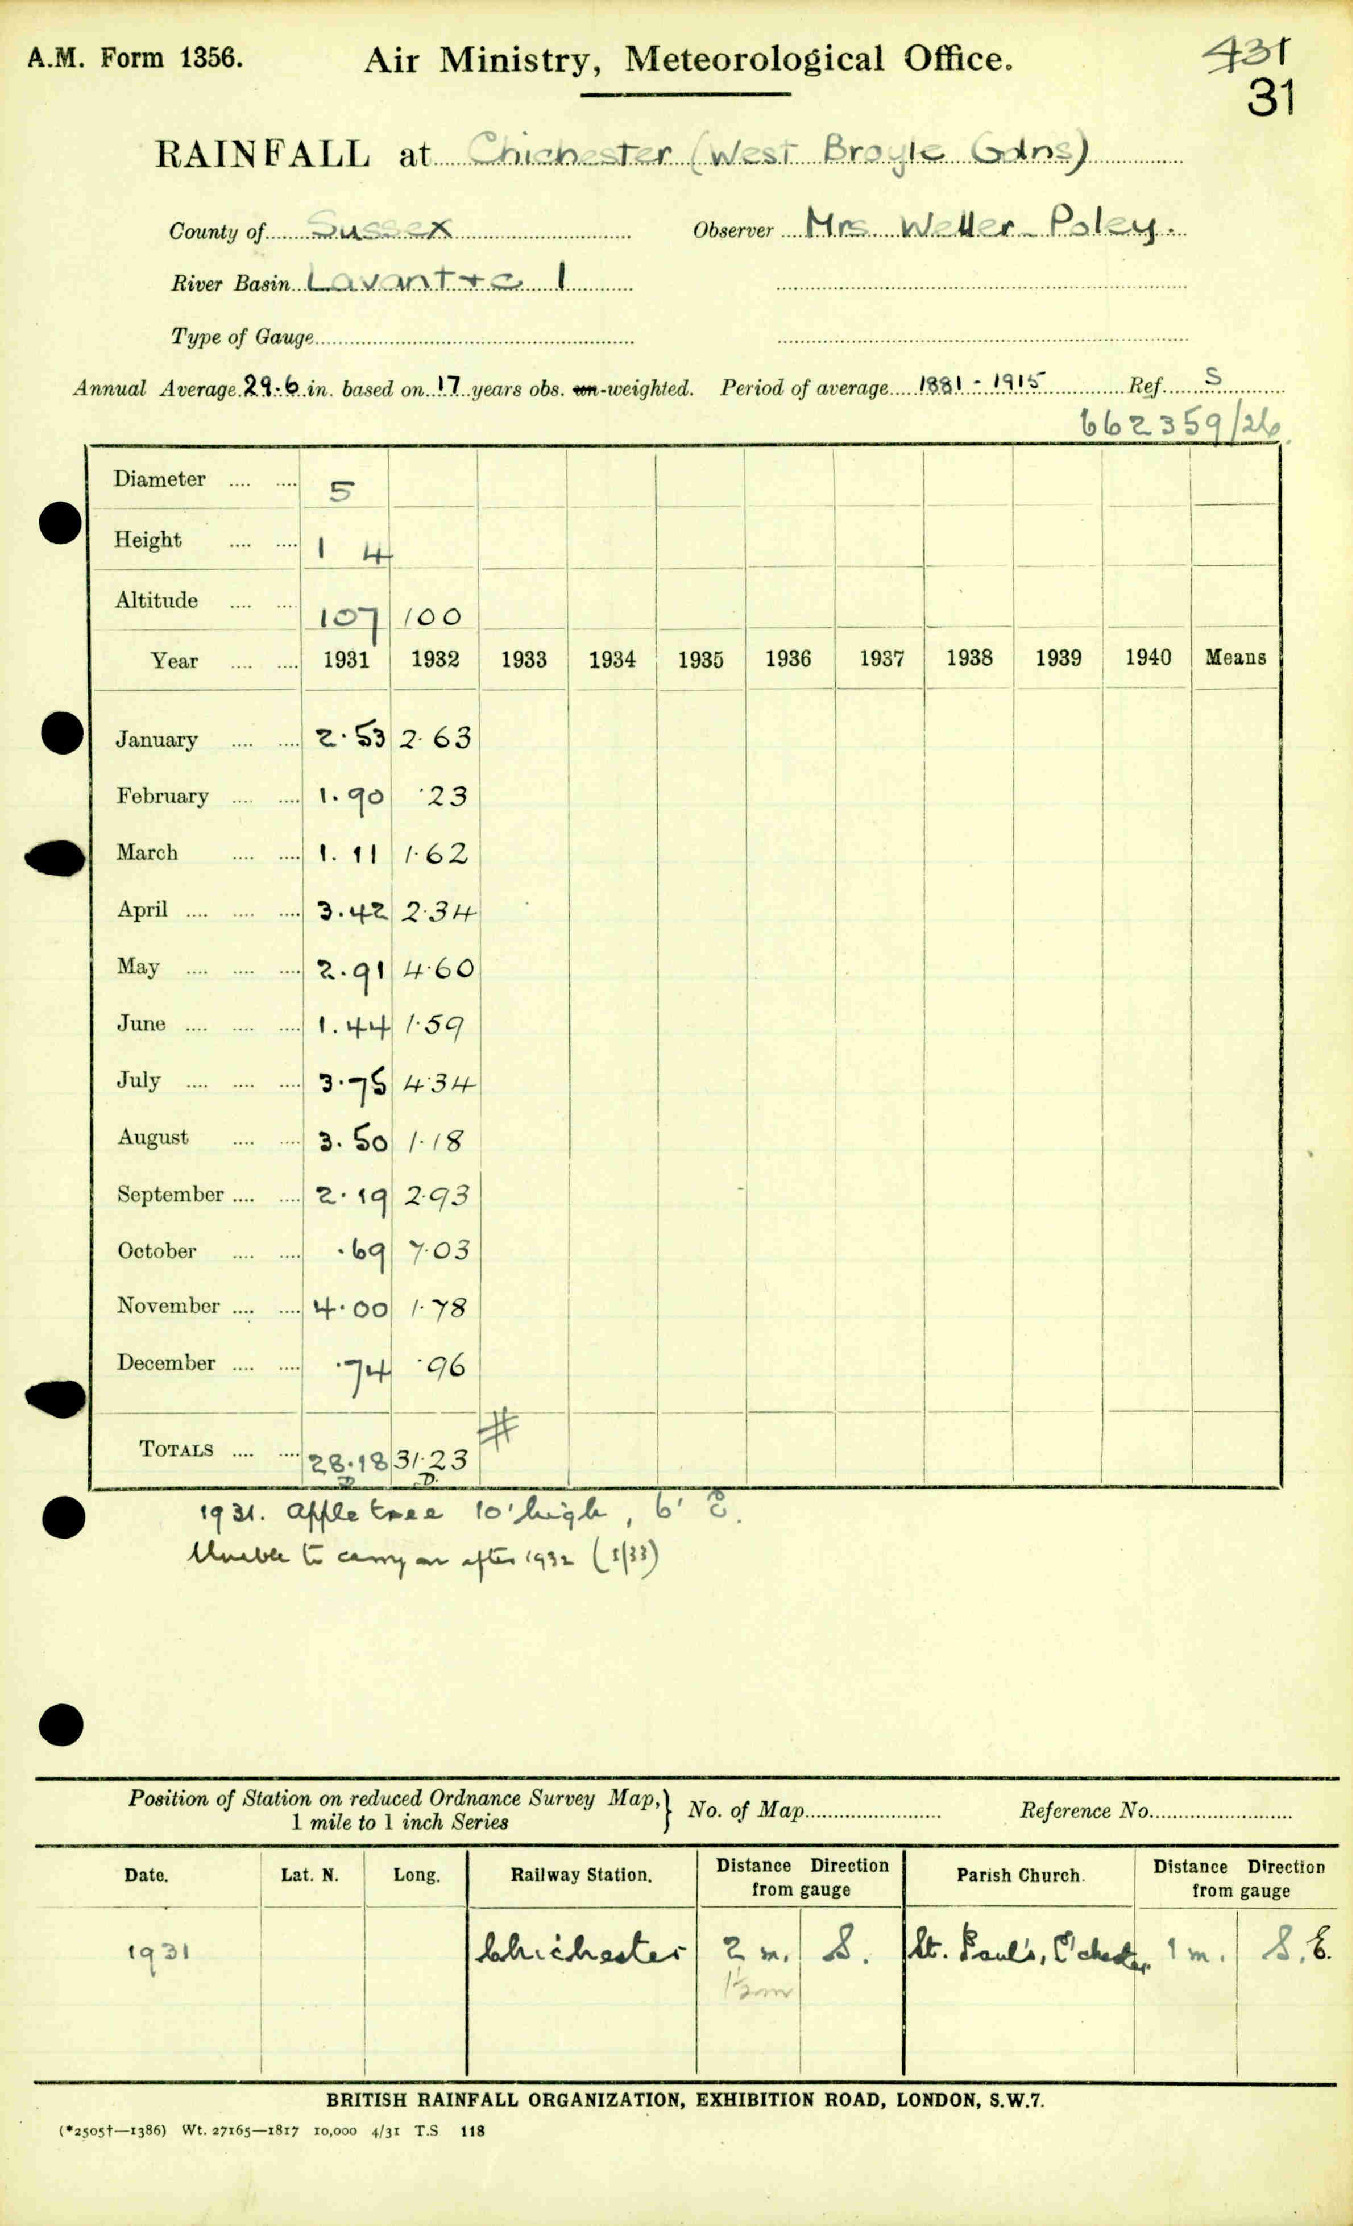 A.M. Form 1356.
Air Ministry, Meteorological Office.
431
31
RAINFALL at Chichester (West Broyle Gdns)
County of Sussex Observer Mrs Weller-Poley.
River Basin Lavant +c 1
Type of Gauge
Annual Average 29.6 in. based on 17 years obs. un-weighted. Period of average 1881 - 1915 Ref. S
662359/26
Diameter .... .... 5
Height .... .... 1 4
Altitude .... .... 107 100
Year .... .... 1931 1932 1933 1934 1935 1936 1937 1938 1939 1940 Means
January .... .... 2.53 2.63
February .... .... 1.90 .23
March .... .... 1.11 1.62
April .... .... .... 3.42 2.34
May .... .... .... 2.91 4.60
June .... .... .... 1.44 1.59
July .... .... .... 3.75 4.34
August .... .... 3.50 1.18
September .... .... 2.19 2.93
October .... .... .69 7.03
November .... .... 4.00 1.78
December .... .... .74 .96
#
TOTALS .... .... 28.18 31.23
D D.
1931. Apple tree 10' high, 6' E.
Unable to carry on after 1932 (1/33)
Position of Station on reduced Ordnance Survey Map, } No. of Map Reference No.
1 mile to 1 inch Series
Date. Lat. N. Long. Railway Station. Distance Direction from gauge Parish Church. Distance Direction from gauge
1931 Chichester 2 m. S. St. Paul's, C'chester 1 m. S.E.
1½m
BRITISH RAINFALL ORGANIZATION, EXHIBITION ROAD, LONDON, S.W.7.
(*2505†—1386) Wt. 27165—1817 10,000 4/31 T.S 118